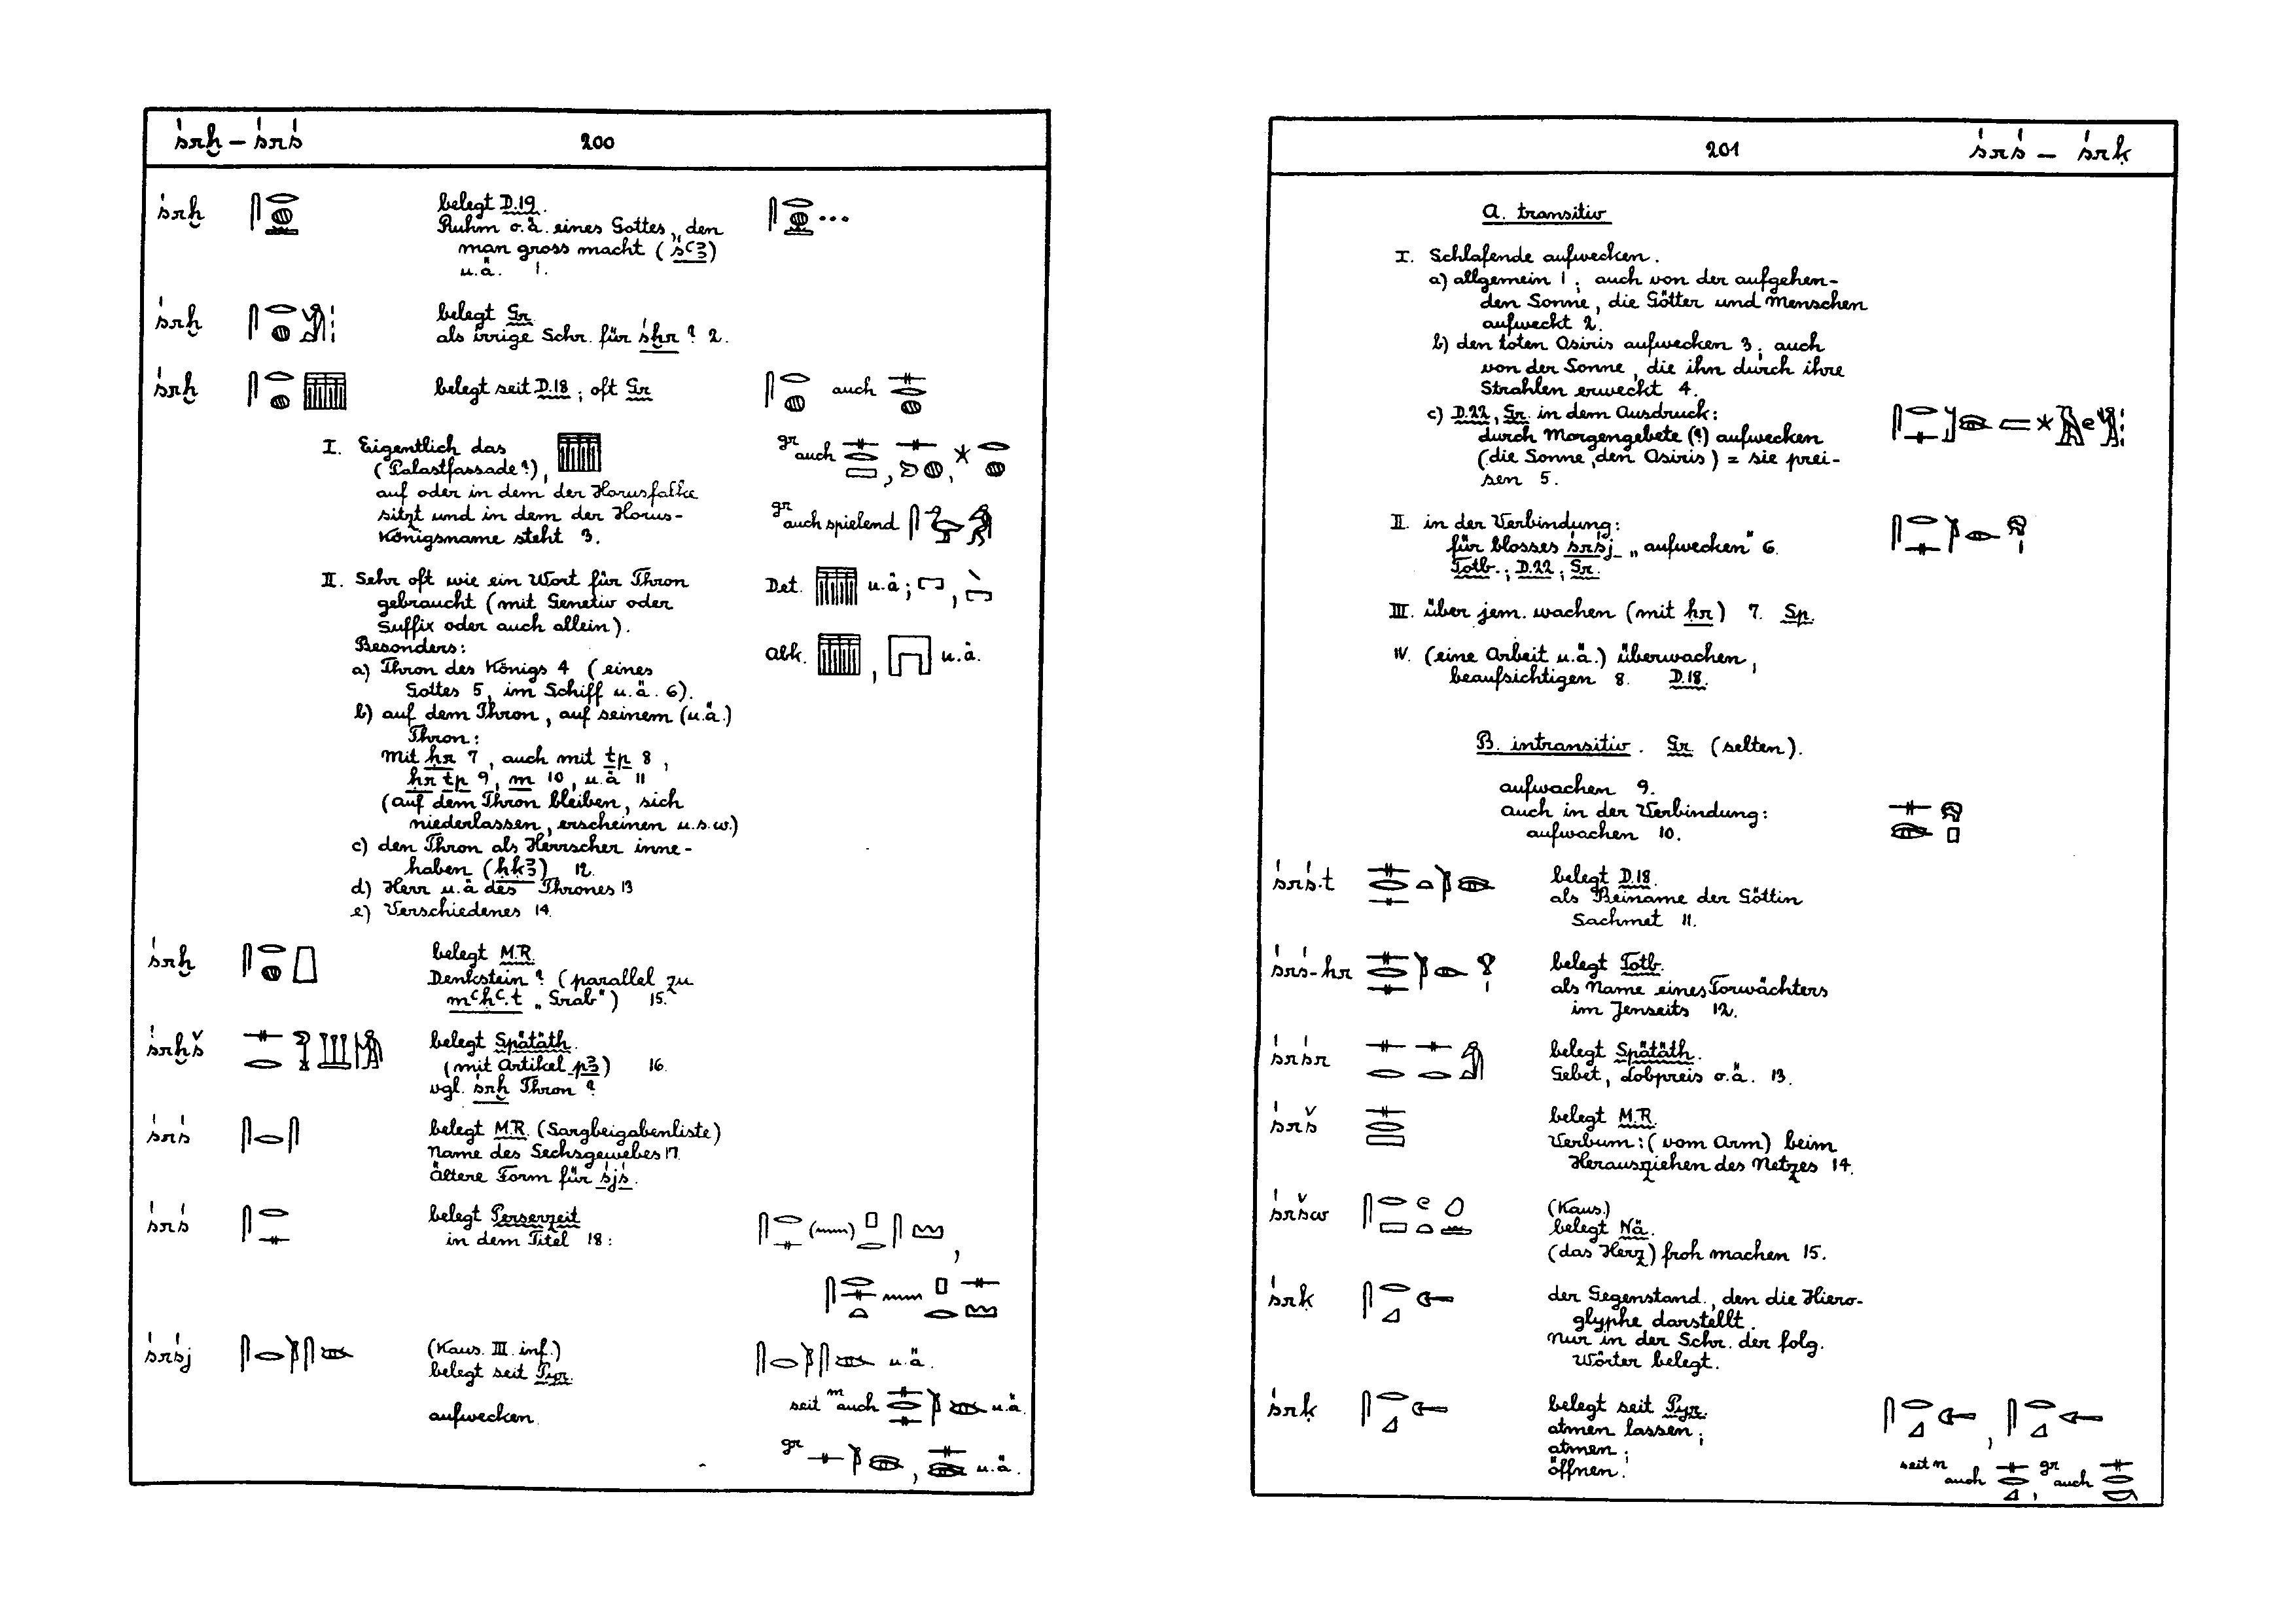 śrḫ – śrś
200
śrḫ
belegt D.19.
Ruhm o.ä. eines Gottes, den
man gross macht (sꜥꜣ)
u.ä. 1.
śrḫ
belegt Gr.
als irrige Schr. für śḫr ? 2.
śrḫ
belegt seit D.18; oft Gr.
auch
I. Eigentlich das
(Palastfassade?),
auf oder in dem der Horusfalke
sitzt und in dem der Horus-
Königsname steht 3.
gr auch
gr auch spielend
II. Sehr oft wie ein Wort für Thron
gebraucht (mit Genetiv oder
Suffix oder auch allein).
Besonders:
a) Thron des Königs 4 (eines
Gottes 5, im Schiff u.ä. 6).
b) auf dem Thron, auf seinem (u.ä.)
Thron:
mit ḥr 7, auch mit tp 8,
ḥr tp 9, m 10, u.ä. 11
(auf dem Thron bleiben, sich
niederlassen, erscheinen u.s.w.)
c) den Thron als Herrscher inne-
haben (ḥḳꜣ) 12.
d) Herr u.ä. des Thrones 13
e) Verschiedenes 14.
Det. u.ä;
Abk. , u.ä.
śrḫ
belegt M.R.
Denkstein ? (parallel zu
mꜥḥꜥ.t „Grab“) 15.
śrḫš
belegt Spätäth.
(mit Artikel pꜣ) 16.
vgl. śrḫ Thron ?
śrś
belegt M.R. (Sargbeigabenliste)
Name des Sechsgewebes 17.
ältere Form für śjś.
śrś
belegt Perserzeit
in dem Titel 18:
śrśj
(Kaus. III. inf.)
belegt seit Pyr.
aufwecken.
u.ä.
seit m auch u.ä.
gr , u.ä.
201
śrś – śrḳ
A. transitiv
I. Schlafende aufwecken.
a) allgemein 1; auch von der aufgehen-
den Sonne, die Götter und Menschen
aufweckt 2.
b) den toten Osiris aufwecken 3; auch
von der Sonne, die ihn durch ihre
Strahlen erweckt 4.
c) D.22, Gr. in dem Ausdruck:
durch Morgengebete (?) aufwecken
(die Sonne, den Osiris) = sie prei-
sen 5.
II. in der Verbindung:
für blosses śrśj „aufwecken“ 6.
Totb.; D.22; Gr.
III. über jem. wachen (mit ḥr) 7. Sp.
IV. (eine Arbeit u.ä.) überwachen,
beaufsichtigen 8. D.18.
B. intransitiv. Gr. (selten).
aufwachen 9.
auch in der Verbindung:
aufwachen 10.
śrś.t
belegt D.18.
als Beiname der Göttin
Sachmet 11.
śrś-ḥr
belegt Totb.
als Name eines Torwächters
im Jenseits 12.
śrśr
belegt Spätäth.
Gebet, Lobpreis o.ä. 13.
śrš
belegt M.R.
Verbum: (vom Arm) beim
Herausziehen des Netzes 14.
śršw
(Kaus.)
belegt Nä.
(das Herz) froh machen 15.
śrḳ
der Gegenstand, den die Hiero-
glyphe darstellt.
Nur in der Schr. der folg.
Wörter belegt.
śrḳ
belegt seit Pyr.
atmen lassen;
atmen;
öffnen.
seit n auch , gr auch